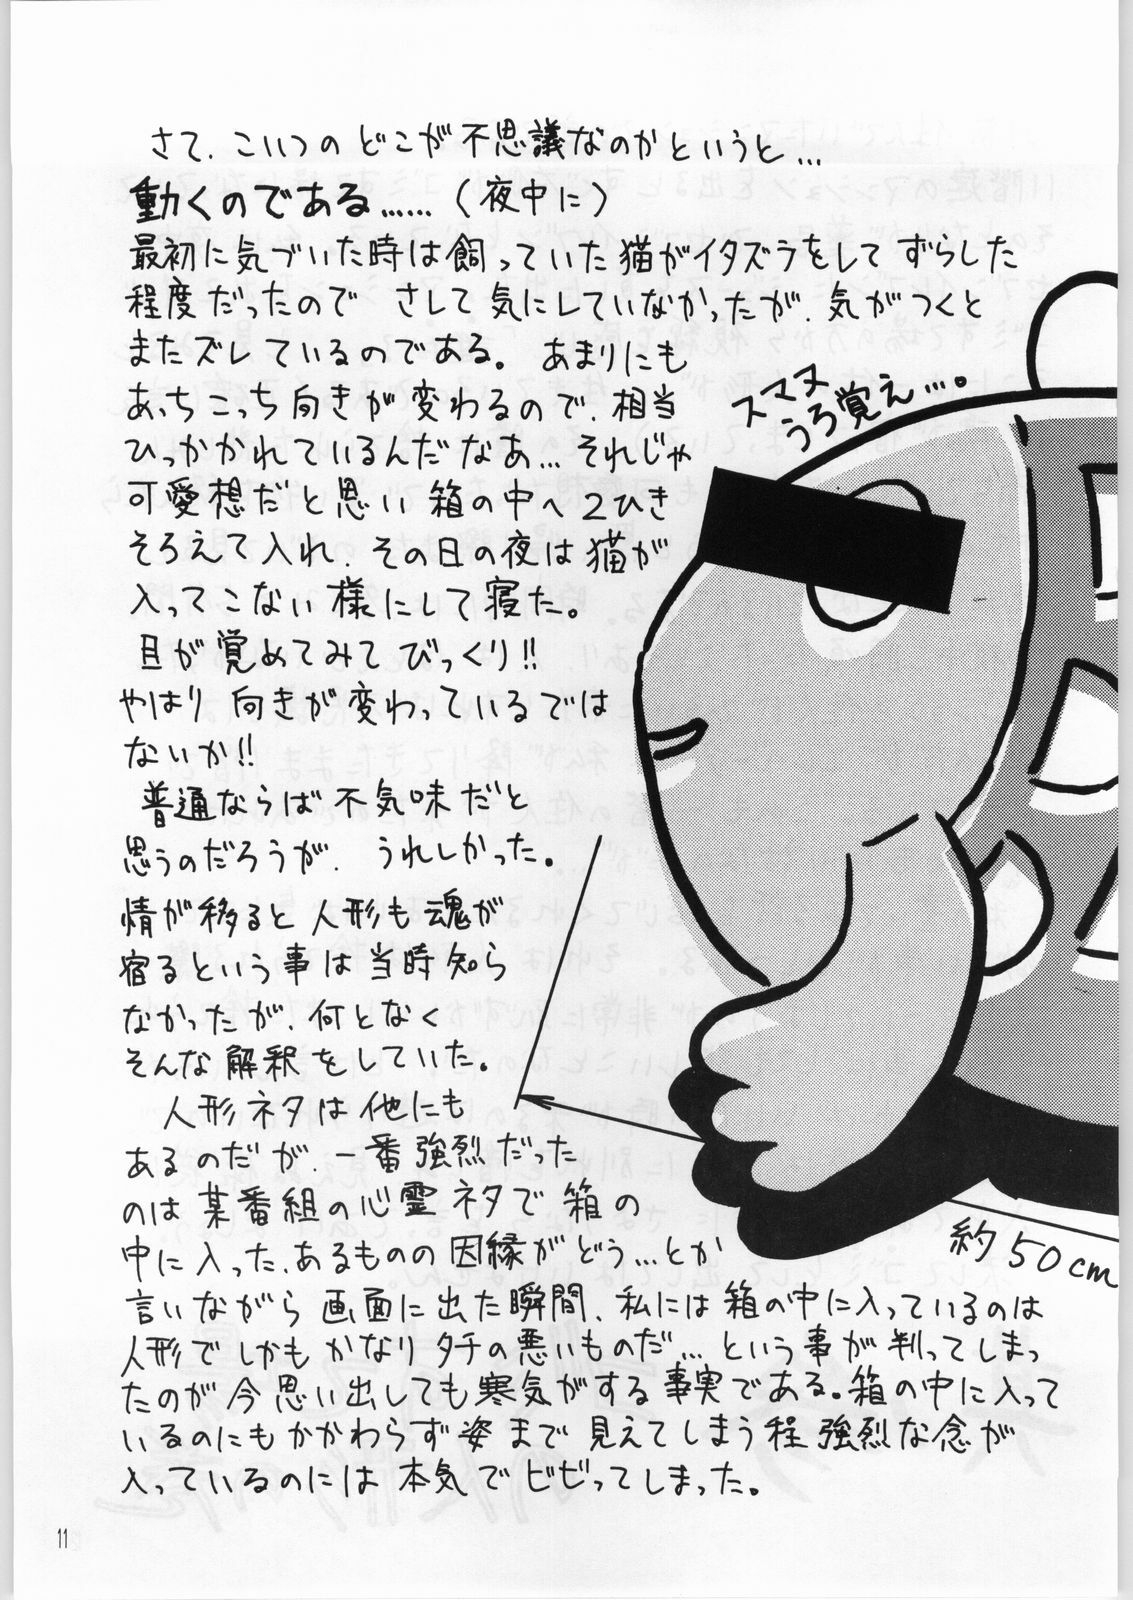 さて、こいつのどこが不思議なのかというと…
動くのである……（夜中に）
最初に気づいた時は飼っていた猫がイタズラをしてずらした
程度だったので さして気にしていなかったが、気がつくと
またズレているのである。 あまりにも
あっちこっち向きが変わるので、相当
ひっかかれているんだなあ… それじゃ
可愛想だと思い 箱の中へ2ひき
そろえて入れ、その日の夜は猫が
入ってこない様にして寝た。
目が覚めてみてびっくり!!
やはり 向きが変わっているでは
ないか!!
普通ならば不気味だと
思うのだろうが、うれしかった。
情が移ると人形も魂が
宿るという事は当時知ら
なかったが、何となく
そんな解釈をしていた。
人形ネタは他にも
あるのだが、一番強烈だった
のは某番組の心霊ネタで箱の
中に入った、あるものの因縁がどう…とか
言いながら画面に出た瞬間、私には箱の中に入っているのは
人形でしかもかなりタチの悪いものだ…という事が判ってしまっ
たのが今思い出しても寒気がする事実である。箱の中に入って
いるのにもかかわらず姿まで見えてしまう程強烈な念が
入っているのには本気でビビってしまった。
スマヌ
うろ覚え…。
約50cm
11